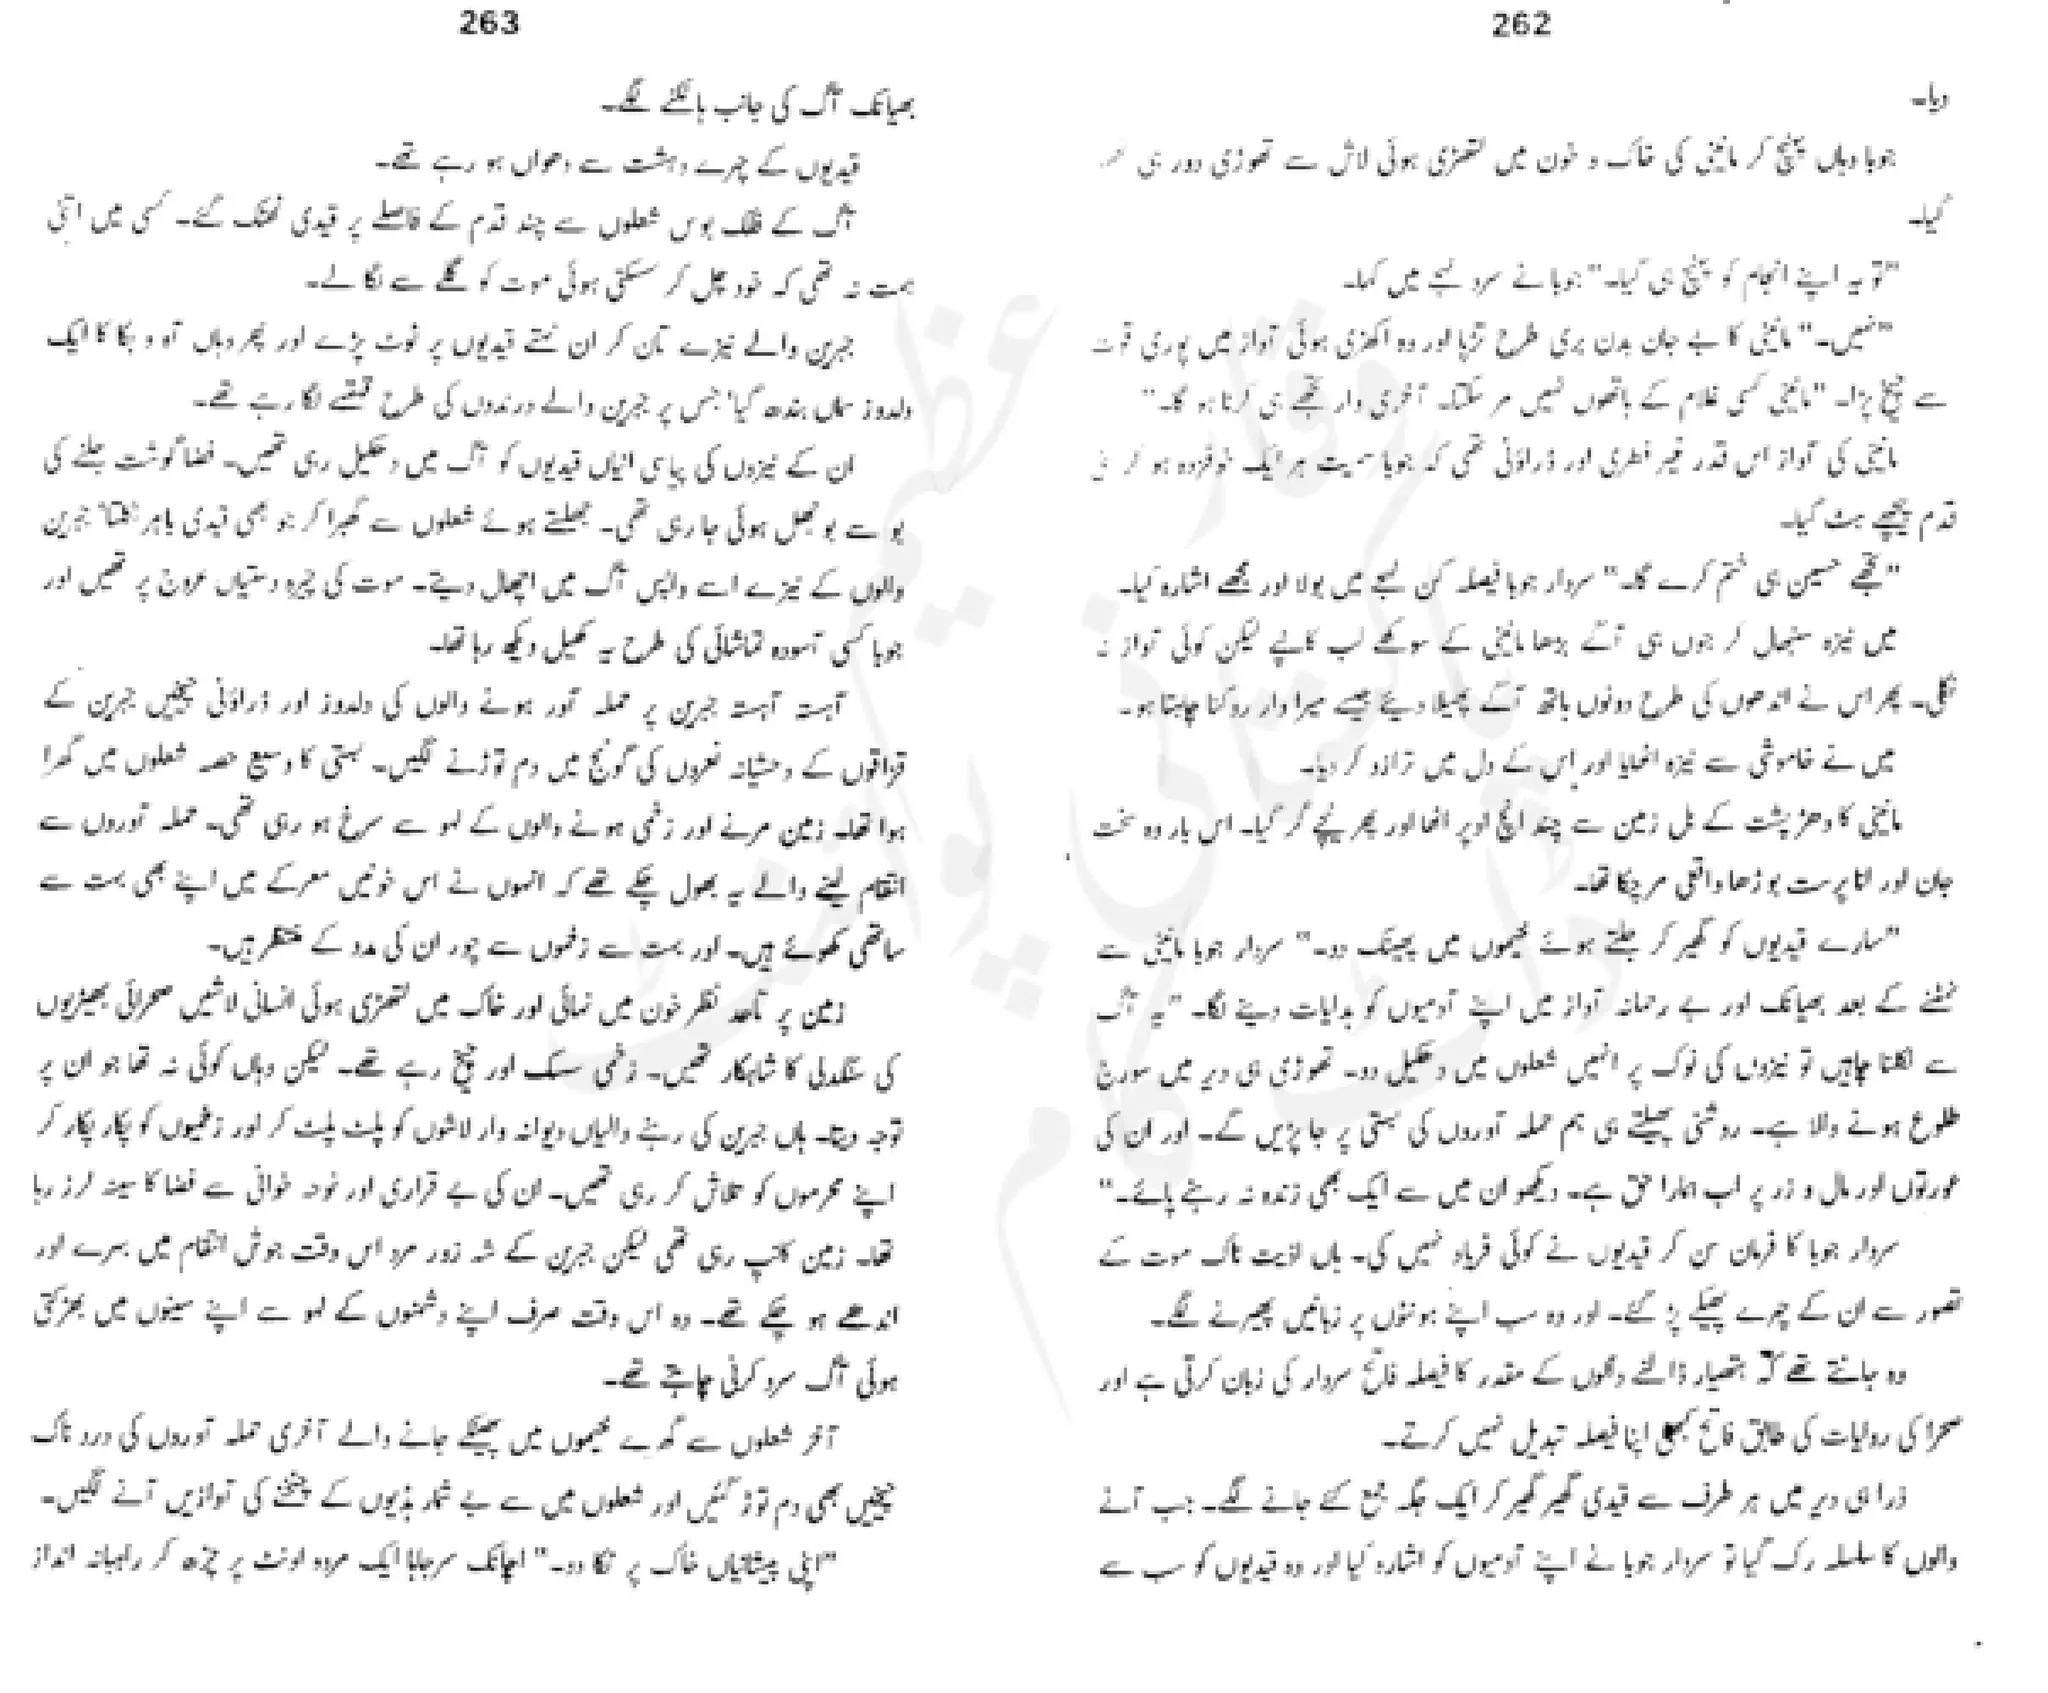 262
دیا۔
جوبا وہاں پہنچ کر مانینی کی خاک و خون میں لتھڑی ہوئی لاش سے تھوڑی دور ہی
گیا۔
"تو یہ اپنے انجام کو پہنچ ہی گیا۔" جوبا نے سرد لہجے میں کہا۔
"نہیں۔" مانینی کا بے جان بدن بری طرح تڑپا اور وہ اکھڑی ہوئی آواز میں پوری قوت
سے چیخ پڑا۔ "مانینی کسی غلام کے ہاتھوں نہیں مر سکتا۔ آخری وار تجھے ہی کرنا ہو گا۔"
مانینی کی آواز اس قدر غیر فطری اور ڈراؤنی تھی کہ جوبا سمیت ہر ایک خوفزدہ ہو کر
قدم پیچھے ہٹ گیا۔
"تجھے حسین ہی ختم کرے گا۔" سردار جوبا فیصلہ کن لہجے میں بولا اور مجھے اشارہ کیا۔
میں نیزہ سنبھال کر جوں ہی آگے بڑھا مانینی کے سوکھے لب کانپے لیکن کوئی آواز نہ
نکلی۔ پھر اس نے اندھوں کی طرح دونوں ہاتھ آگے پھیلا دیئے جیسے میرا وار روکنا چاہتا ہو۔
میں نے خاموشی سے نیزہ اٹھایا اور اس کے دل میں ترازو کر دیا۔
مانینی کا دھڑ پشت کے بل زمین سے چند انچ اوپر اٹھا اور پھر نیچے گر گیا۔ اس بار وہ سخت
جان اور انا پرست بوڑھا واقعی مر چکا تھا۔
"سارے قیدیوں کو گھیر کر جلتے ہوئے خیموں میں پھینک دو۔" سردار جوبا مانینی سے
نمٹنے کے بعد بھیانک اور بے رحمانہ آواز میں اپنے آدمیوں کو ہدایات دینے لگا۔ "یہ آگ
سے نکلنا چاہیں تو نیزوں کی نوک پر انہیں شعلوں میں دھکیل دو۔ تھوڑی ہی دیر میں سورج
طلوع ہونے والا ہے۔ روشنی پھیلتے ہی ہم حملہ آوروں کی بستی پر جا پڑیں گے۔ اور ان کی
عورتوں اور مال و زر پر اب ہمارا حق ہے۔ دیکھو ان میں سے ایک بھی زندہ نہ رہنے پائے۔"
سردار جوبا کا فرمان سن کر قیدیوں نے کوئی فریاد نہیں کی۔ ہاں اذیت ناک موت کے
تصور سے ان کے چہرے پھیکے پڑ گئے۔ اور وہ سب اپنے ہونٹوں پر زبانیں پھیرنے لگے۔
وہ جانتے تھے کہ ہتھیار ڈالنے والوں کے مقدر کا فیصلہ فاتح سردار کی زبان کرتی ہے اور
صحرا کی روایات کی مطابق فاتح کبھی اپنا فیصلہ تبدیل نہیں کرتے۔
ذرا ہی دیر میں ہر طرف سے قیدی گھیر گھیر کر ایک جگہ جمع کئے جانے لگے۔ جب آنے
والوں کا سلسلہ رک گیا تو سردار جوبا نے اپنے آدمیوں کو اشارہ کیا اور وہ قیدیوں کو سب سے
263
بھیانک آگ کی جانب ہانکنے لگے۔
قیدیوں کے چہرے دہشت سے دھواں ہو رہے تھے۔
آگ کے فلک بوس شعلوں سے چند قدم کے فاصلے پر قیدی ٹھٹک گئے۔ کسی میں اتنی
ہمت نہ تھی کہ خود چل کر سسکتی ہوئی موت کو گلے سے لگا لے۔
جبرین والے نیزے تان کر ان نہتے قیدیوں پر ٹوٹ پڑے اور پھر وہاں آہ و بکا کا ایک
دلدوز سماں بندھ گیا' جس پر جبرین والے درندوں کی طرح قہقہے لگا رہے تھے۔
ان کے نیزوں کی پیاسی انیاں قیدیوں کو آگ میں دھکیل رہی تھیں۔ فضا گوشت جلنے کی
بو سے بوجھل ہوئی جا رہی تھی۔ جھلستے ہوئے شعلوں سے گھبرا کر جو بھی قیدی باہر نکلتا' جبرین
والوں کے نیزے اسے واپس آگ میں اچھال دیتے۔ موت کی چیرہ دستیاں عروج پر تھیں اور
جوبا کسی آسودہ تماشائی کی طرح یہ کھیل دیکھ رہا تھا۔
آہستہ آہستہ جبرین پر حملہ آور ہونے والوں کی دلدوز اور ڈراؤنی چیخیں جبرین کے
قزاقوں کے وحشیانہ نعروں کی گونج میں دم توڑنے لگیں۔ بستی کا وسیع حصہ شعلوں میں گھرا
ہوا تھا۔ زمین مرنے اور زخمی ہونے والوں کے لہو سے سرخ ہو رہی تھی۔ حملہ آوروں سے
انتقام لینے والے یہ بھول چکے تھے کہ انہوں نے اس خونیں معرکے میں اپنے بھی بہت سے
ساتھی کھوئے ہیں۔ اور بہت سے زخموں سے چور ان کی مدد کے منتظر ہیں۔
زمین پر تاحد نظر خون میں نہائی اور خاک میں لتھڑی ہوئی انسانی لاشیں صحرائی بھیڑیوں
کی سنگدلی کا شاہکار تھیں۔ زخمی سسک اور چیخ رہے تھے۔ لیکن وہاں کوئی نہ تھا جو ان پر
توجہ دیتا۔ ہاں جبرین کی رہنے والیاں دیوانہ وار لاشوں کو پلٹ پلٹ کر اور زخمیوں کو پکار پکار کر
اپنے محرموں کو تلاش کر رہی تھیں۔ ان کی بے قراری اور نوحہ خوانی سے فضا کا سینہ لرز رہا
تھا۔ زمین کانپ رہی تھی لیکن جبرین کے شہ زور مرد اس وقت جوش انتقام میں بہرے اور
اندھے ہو چکے تھے۔ وہ اس وقت صرف اپنے دشمنوں کے لہو سے اپنے سینوں میں بھڑکتی
ہوئی آگ سرد کرنی چاہتے تھے۔
آخر شعلوں سے گھرے خیموں میں پھینکے جانے والے آخری حملہ آوروں کی درد ناک
چیخیں بھی دم توڑ گئیں اور شعلوں میں سے بے شمار ہڈیوں کے چٹخنے کی آوازیں آنے لگیں۔
"اپنی پیشانیاں خاک پر لگا دو۔" اچانک سرجابا ایک مردہ اونٹ پر چڑھ کر راہبانہ انداز